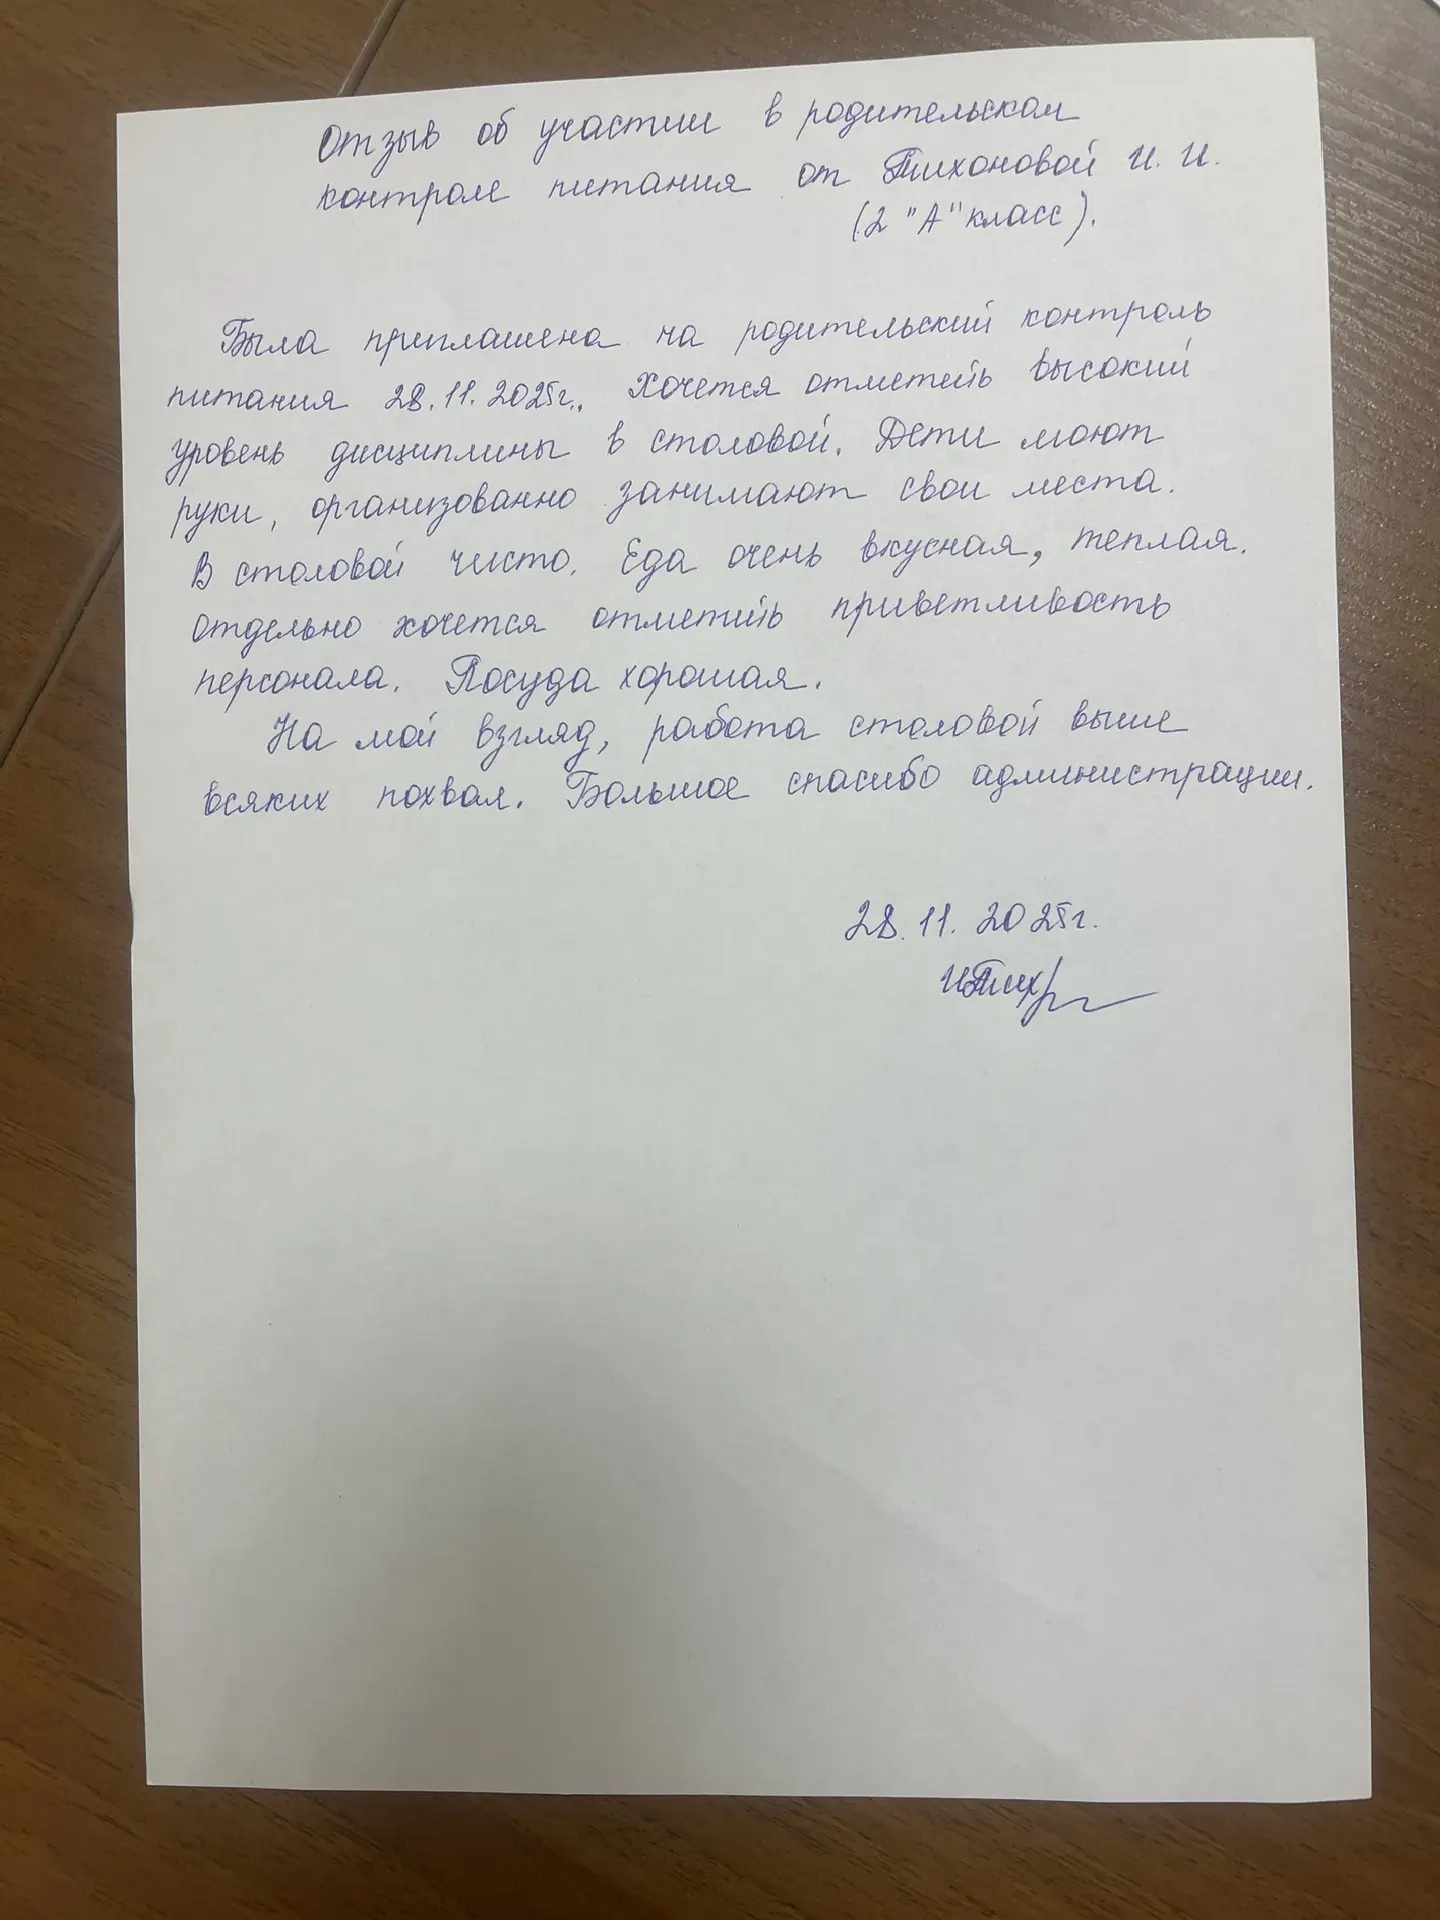 Отзыв об участии в родительском
контроле питания от Тихоновой И. И.
(2 "А" класс).
Была приглашена на родительский контроль
питания 28.11.2025г.. Хочется отметить высокий
уровень дисциплины в столовой. Дети моют
руки, организованно занимают свои места.
В столовой чисто. Еда очень вкусная, теплая.
Отдельно хочется отметить приветливость
персонала. Посуда хорошая.
На мой взгляд, работа столовой выше
всяких похвал. Большое спасибо администрации.
28.11.2025г.